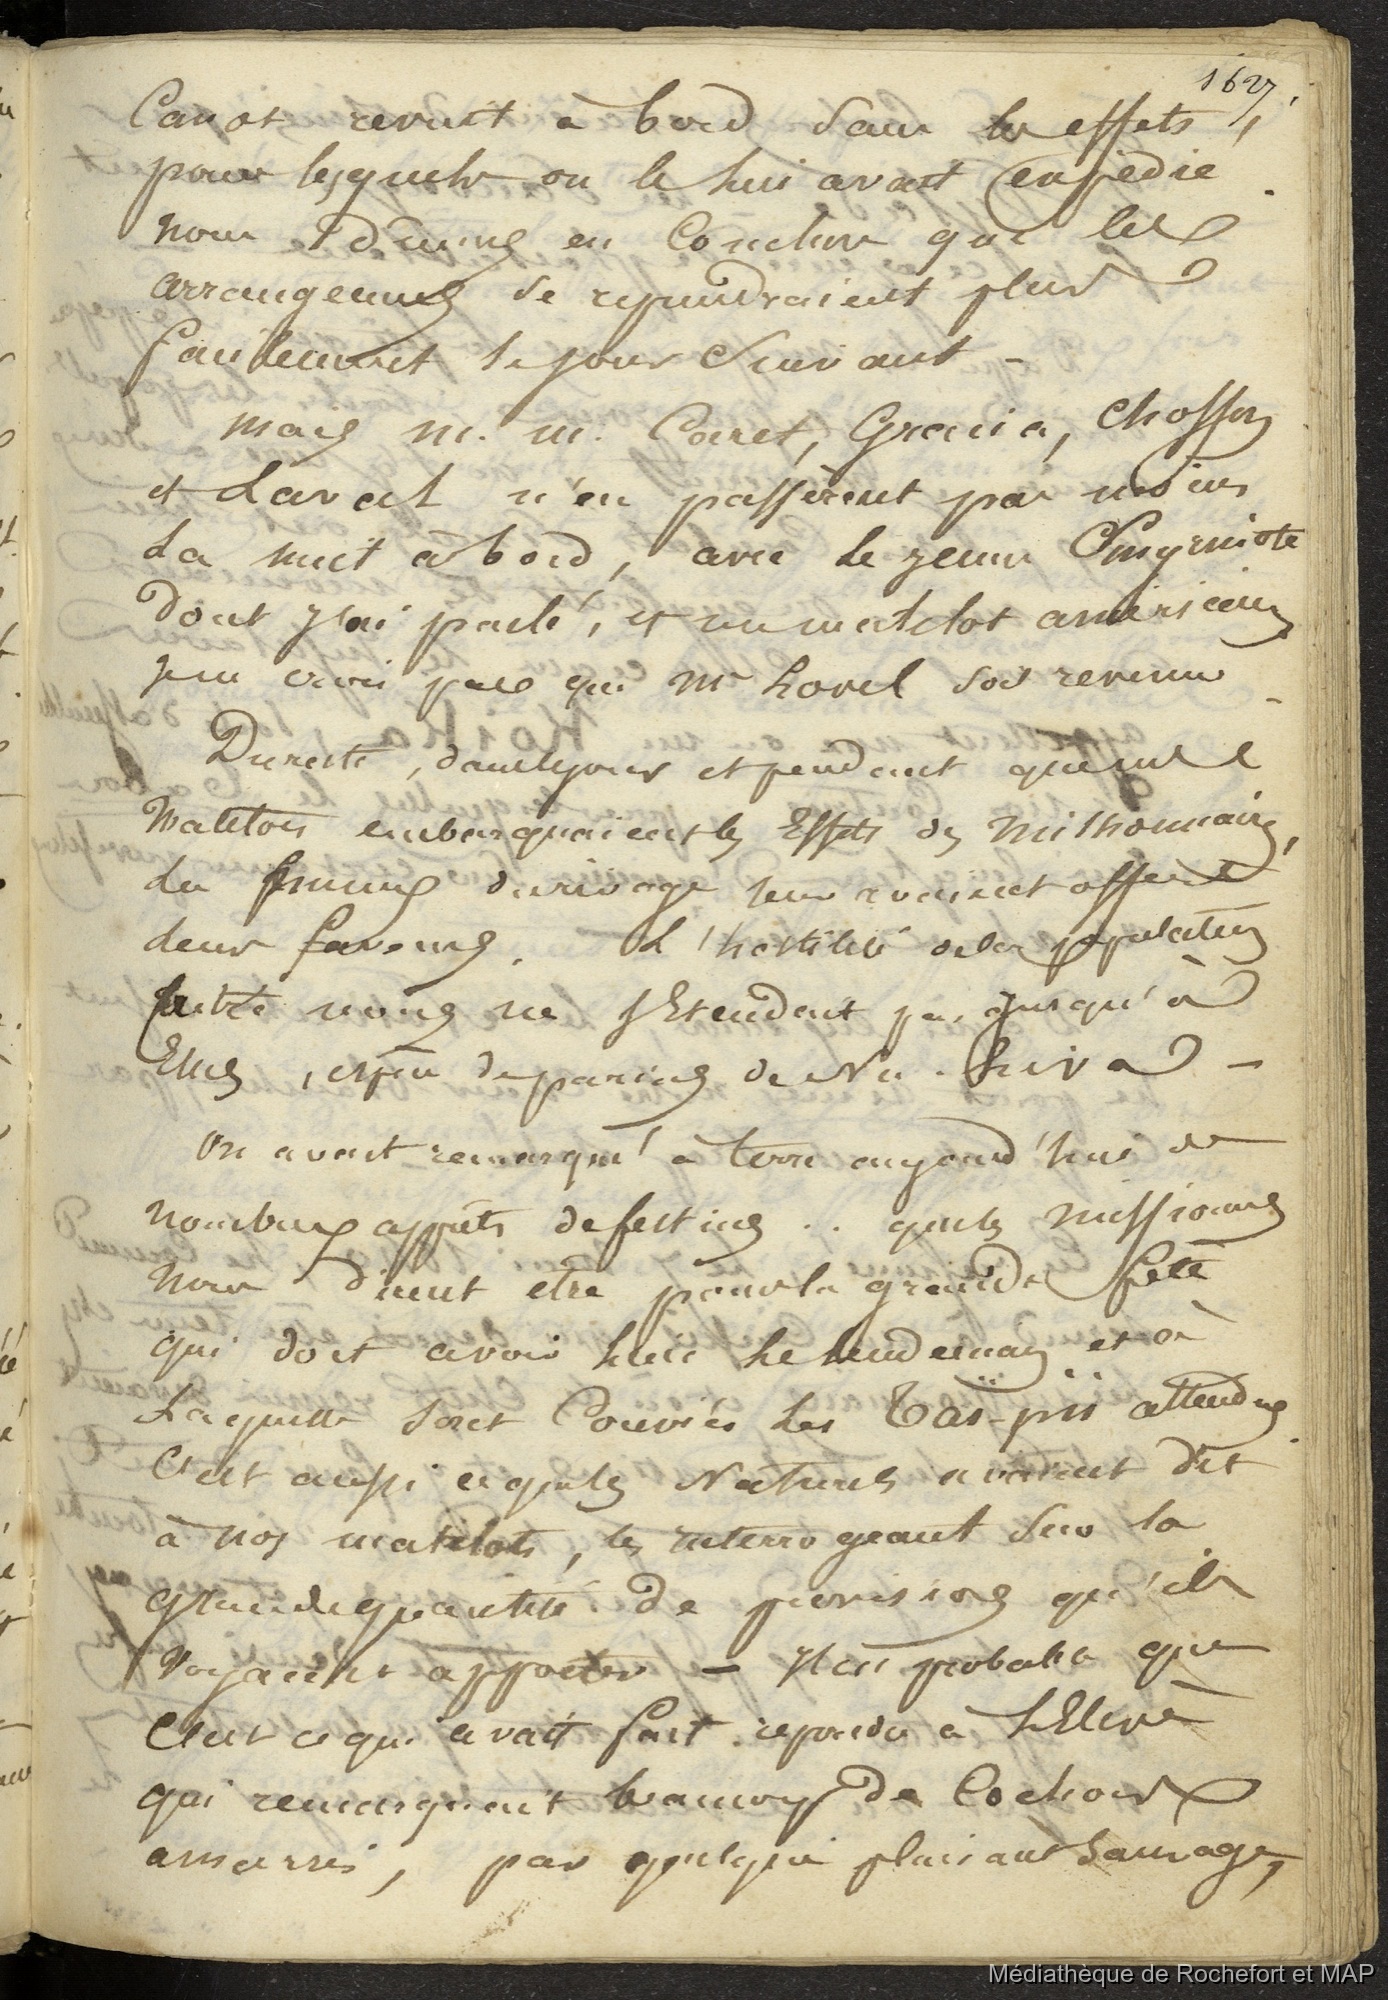 1627.
Canot revint à bord sans les effets,
pour lesquels on le lui avait expédié.
nous dûmes en conclure que les
arrangemens se reprendraient plus
facilement le jour suivant -
mais M. M. Caret, Gracia, Chosson
et Laval n'en passèrent pas moins
La nuit à bord, avec le jeune Smyrniote
dont j'ai parlé, et un matelot américain,
je ne crois pas que Mr Lovel soit revenu -
Du reste, dans le jour et pendant que nos
Matelots embarquaient les Effets des Missionnaires,
les femmes du rivage leur avaient offert
leurs faveurs. L'hostilité de la population
contre nous ne s'Etendait pas jusqu'à
Elles, de Nu-hiva -
on avait remarqué à terre aujourd'hui de
nombreux apprêts de festins .. que les missionnaires
nous dirent être pour la grande fête
qui doit avoir lieu le lendemain et à
Laquelle sont Conviés les Taï-piis attendus.
C'est aussi ce que les Naturels avaient dit
à nos matelots, les interrogeant sur la
grande quantité de provisions qu'ils
voyaient apporter - il est probable que
C'est ce qui avait fait répondre à l'Elève
qui remarquait beaucoup de Cochons
amarrés, par quelque plaisant Sauvage,
Médiathèque de Rochefort et MAP